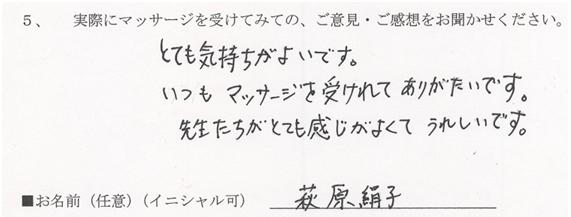 5、 実際にマッサージを受けてみての、ご意見・ご感想をお聞かせください。
とても気持ちがよいです。
いつも マッサージを受けれて ありがたいです。
先生たちがとても感じがよくて うれしいです。
■お名前（任意）（イニシャル可） 萩原絹子